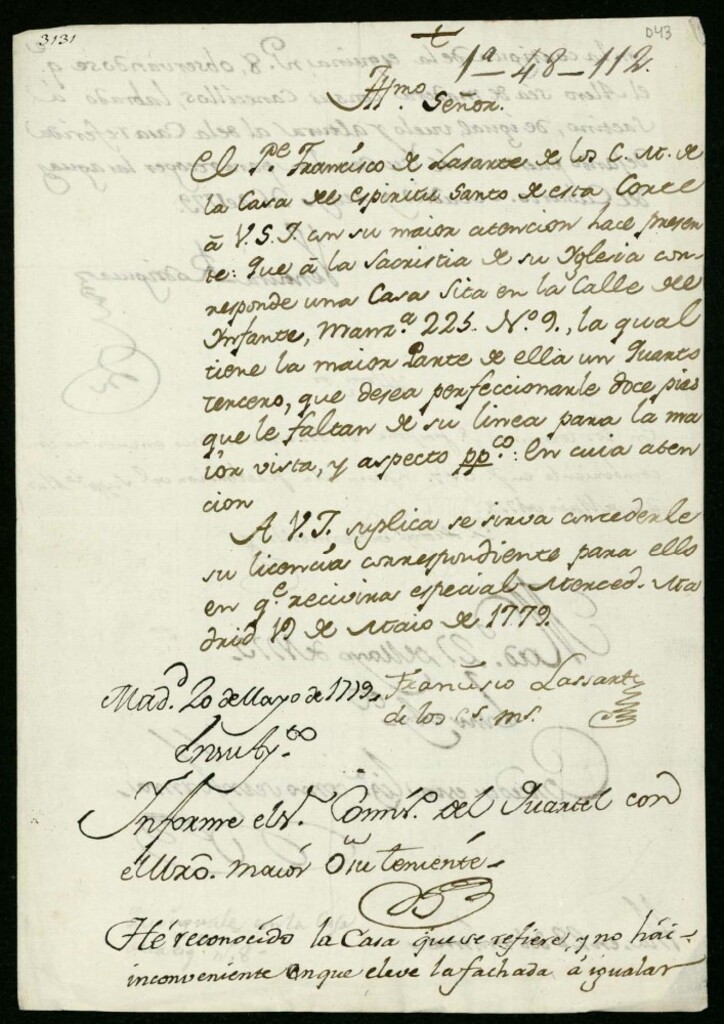 3131
043
1ª-48-112.
Yllmo. Señor.
El Pe. Francisco de Lasarte de los C. M. de
la Casa del Espiritu Santo de esta Corte
â V.S.I. con su maior atencion hace presen
te: Que â la Sacristia de su Yglesia cor-
responde una Casa Sita en la Calle del
Ynfante, Manz.ª 225. N.º 9., la qual
tiene la maior Parte de ella un Quarto
tercero, que desea perfeccionarle doce pies
que le faltan de su linea para la ma
ior vista, y aspecto ppco.: En cuia aten
cion
A V.I. suplica se sirva concederle
su licencia correspondiente para ello
en qe. recivira especial Merced. Ma
drid 19 de Maio de 1779.
Francisco Lassarte
de los Cs. Ms.
Madd. 20 de Mayo de 1779.
En su Aymto.
Informe el Sr. Comisro. del Quartel con
el Mro. maior ô su teniente-
Hé reconocido la Casa que se refiere, y no hái
inconveniente en que eleve la fachada á igualar